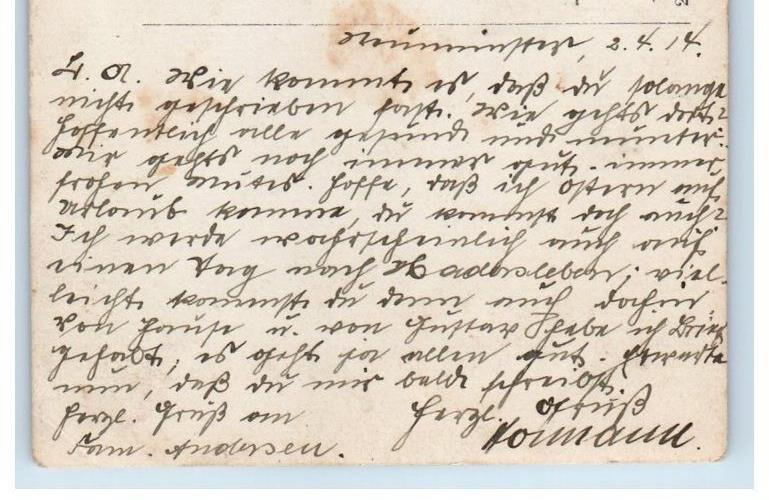 Neumünster, 2.4.14.
L. A. Wie kommt es, daß du solange
nicht geschrieben hast. Wie gehts dort?
Hoffentlich alle gesund und munter.
Mir gehts noch immer gut. immer
frohen Mutes. Hoffe, daß ich Ostern auf
Urlaub komme, du kommst doch auch?
Ich werde wahrscheinlich auch auf
einen Tag nach Hadersleben; viel-
leicht kommst du dann auch dahin
von Hause u. von Gustav habe ich Brief
gehabt; es geht ja allen gut. Erwarte
nun, daß du mir bald schreibst.
Herzl. Gruß an Herzl. Gruß
Fam. Andersen.